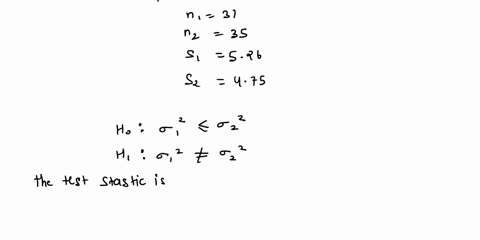 n₁ = 31
n₂ = 35
S₁ = 5.26
S₂ = 4.75
H₀ : σ₁² ≤ σ₂²
H₁ : σ₁² ≠ σ₂²
the test stastic is